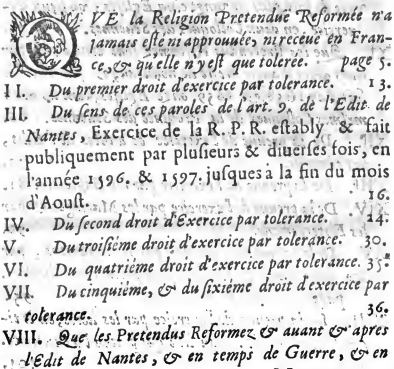 QVE la Religion Pretenduë Reformée n'a
jamais esté ni approuuée, ni receuë en Fran-
ce, & qu'elle n'y est que tolerée. page 5.
II. Du premier droit d'exercice par tolerance. 13.
III. Du sens de ces paroles de l'art. 9. de l'Edit de
Nantes, Exercice de la R. P. R. establу & fait
publiquement par plusieurs & diuerses fois, en
l'année 1596. & 1597. jusques à la fin du mois
d'Aoust. 16.
IV. Du second droit d'Exercice par tolerance. 24.
V. Du troisiéme droit d'exercice par tolerance. 30.
VI. Du quatriéme droit d'exercice par tolerance. 35.
VII. Du cinquiéme, & du sixiéme droit d'exercice par
tolerance. 36.
VIII. Que les Pretendus Reformez & auant & apres
l'Edit de Nantes, & en temps de Guerre, & en